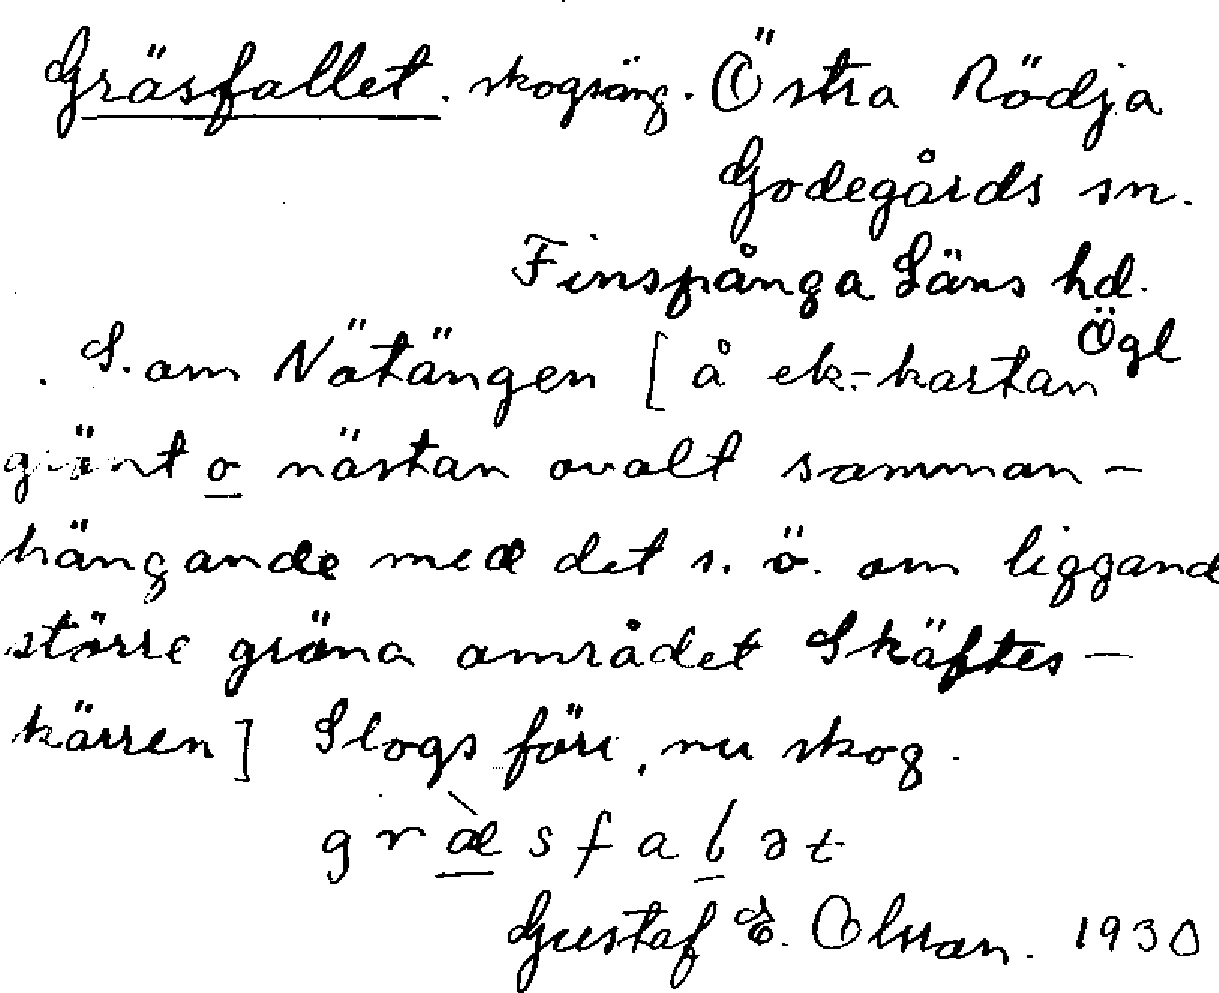 Gräsfallet. skogsäng. Östra Rödja
Godegårds sn.
Finspånga Läns hd.
Ögl
S. om Nötängen [å ek.-kartan
grönt o nästan ovalt samman-
hängande med det s. ö. om liggand
större gröna området Skäftes-
kärren] Slogs förr, nu skog.
græ̀sfalət
Gustaf E. Olsson. 1930